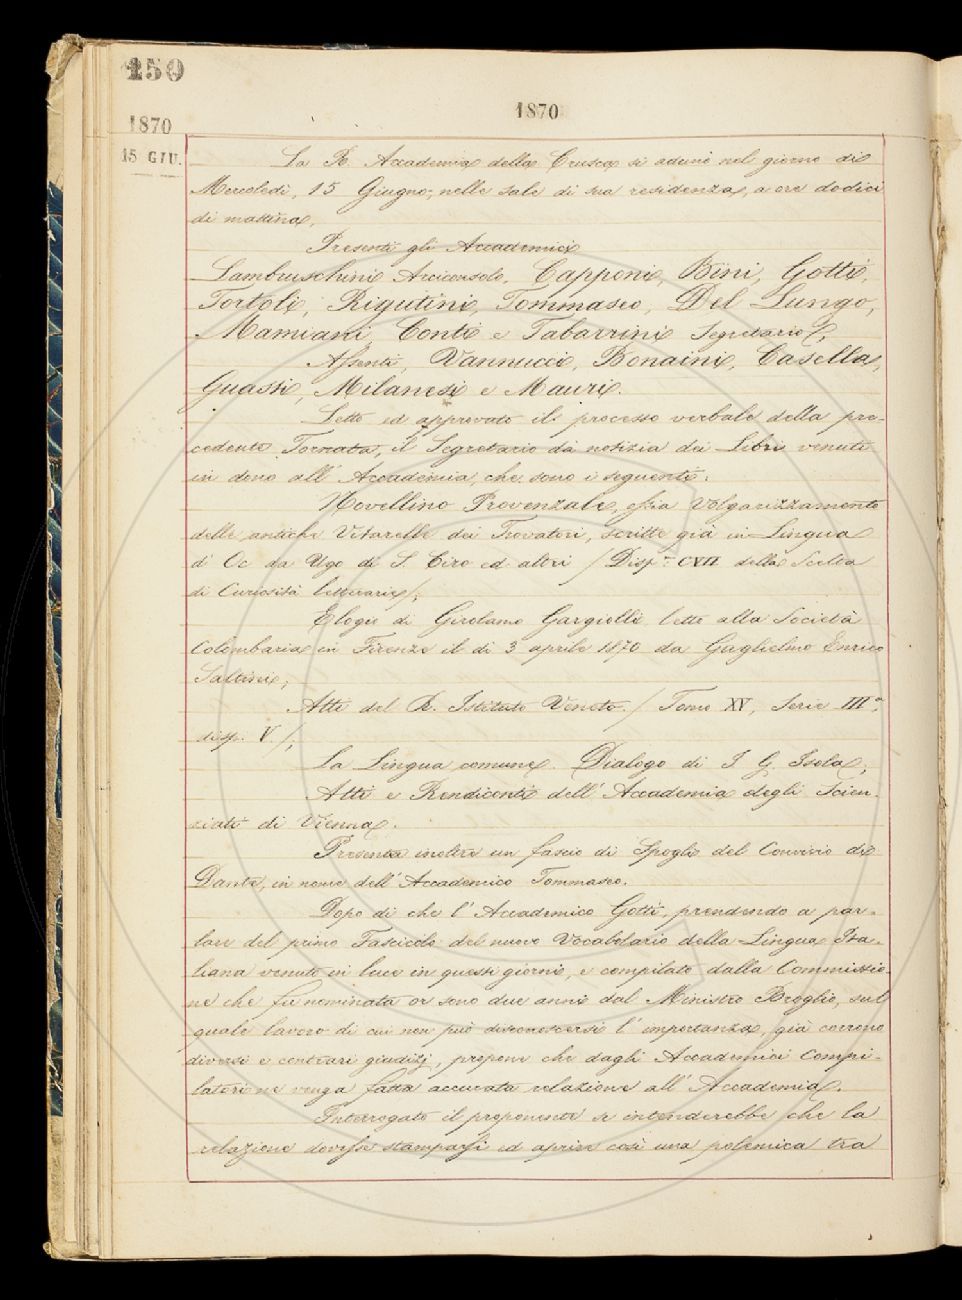 150
1870
1870
15 GIU.
La R. Accademia della Crusca si adunò nel giorno di
Mercoledì, 15 Giugno, nelle sale di sua residenza, a ore dodici
di mattina.
Presenti gli Accademici
Lambruschini Arciconsolo, Capponi, Bini, Gotti,
Tortoli, Rigutini, Tommaseo, Del Lungo,
Mamiani, Conti e Tabarrini Segretario.
Assenti, Vannucci, Bonaini, Casella,
Guasti, Milanesi e Mauri.
Letto ed approvato il processo verbale della pre-
cedente Tornata, il Segretario dà notizia dei Libri venuti
in dono all' Accademia, che sono i seguenti:
Novellino Provenzale, ossia Volgarizzamento
delle antiche Vitarelle dei Trovatori, scritte già in Lingua
d' Oc da Ugo di S. Ciro ed altri / Disp.ª CVII della Scelta
di Curiosità letterarie/;
Elogio di Girolamo Gargiolli letto alla Società
Colombaria in Firenze il dì 3 aprile 1870 da Guglielmo Enrico
Saltini;
Atti del R. Istituto Veneto. / Tomo XV, Serie IIIª,
disp. V./;
La Lingua comune. Dialogo di I. G. Isola;
Atti e Rendiconti dell' Accademia degli Scien-
ziati di Vienna.
Presenta inoltre un fascio di Spogli del Convivio di
Dante, in nome dell' Accademico Tommaseo.
Dopo di che l' Accademico Gotti, prendendo a par-
lare del primo Fascicolo del nuovo Vocabolario della Lingua Ita-
liana venuto in luce in questi giorni, e compilato dalla Commissio-
ne che fu nominata or sono due anni dal Ministro Broglio, sul
quale lavoro di cui non può disconoscersi l' importanza, già corrono
diversi e contrari giudizj, propone che dagli Accademici Compi-
latori ne venga fatta accurata relazione all' Accademia.
Interrogato il proponente se intenderebbe che la
relazione dovesse stamparsi ed aprire così una polemica tra